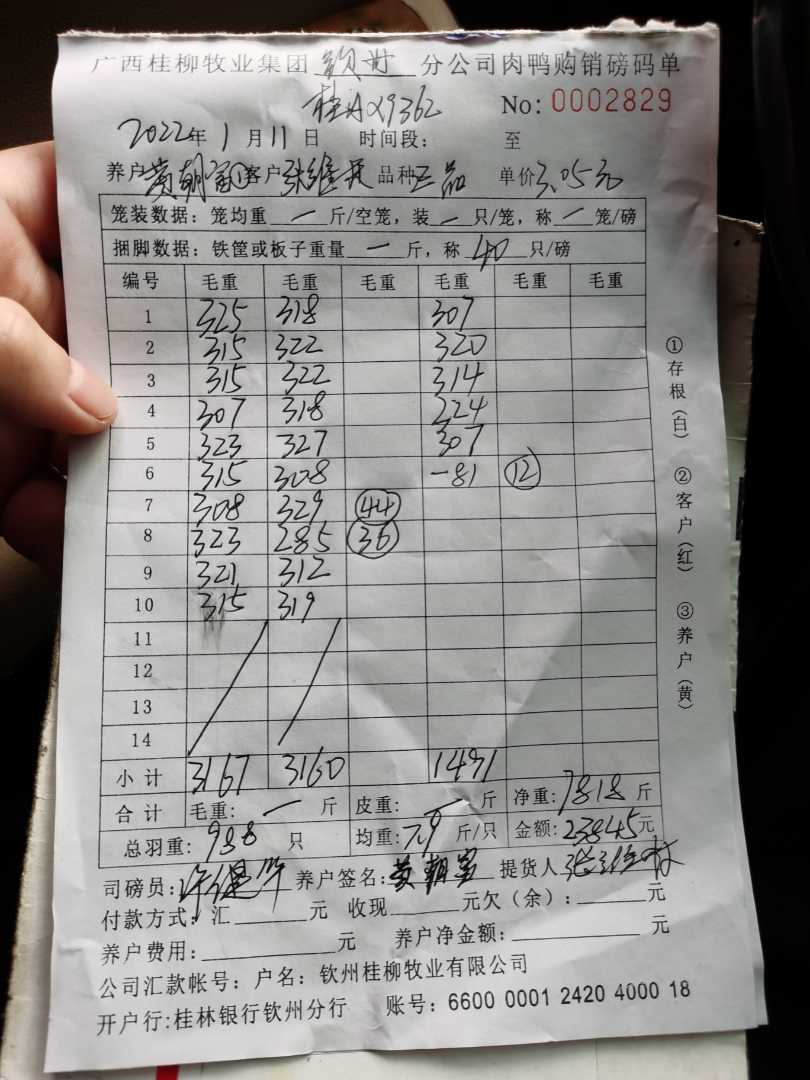 广西桂柳牧业集团 分公司肉鸭购销磅码单
桂A Q9362 No: 0002829
2022年1月11日 时间段: 至
养户黄朝富 客户张维 品种三品 单价3.05元
笼装数据: 笼均重 一 斤/空笼, 装 一 只/笼, 称 一 笼/磅
捆脚数据: 铁筐或板子重量 一 斤, 称 40 只/磅
编号 毛重 毛重 毛重 毛重 毛重 毛重
1 325 318 307
2 315 322 320
3 315 322 314
4 307 318 224
5 323 327 307
6 315 308 -81 12
7 308 329 44
8 323 285 36
9 321 312
10 315 319
11
12
13
14
小计 3167 3160 1491
合计 毛重: 一 斤 皮重: 一 斤 净重: 7818 斤
总羽重: 988 只 均重: 7.9 斤/只 金额: 23845元
司磅员: 养户签名: 黄朝富 提货人
付款方式: 汇 元 收现 元欠(余): 元
养户费用: 元 养户净金额: 元
公司汇款帐号: 户名: 钦州桂柳牧业有限公司
开户行:桂林银行钦州分行 账号: 6600 0001 2420 4000 18
①存根(白) ②客户(红) ③养户(黄)